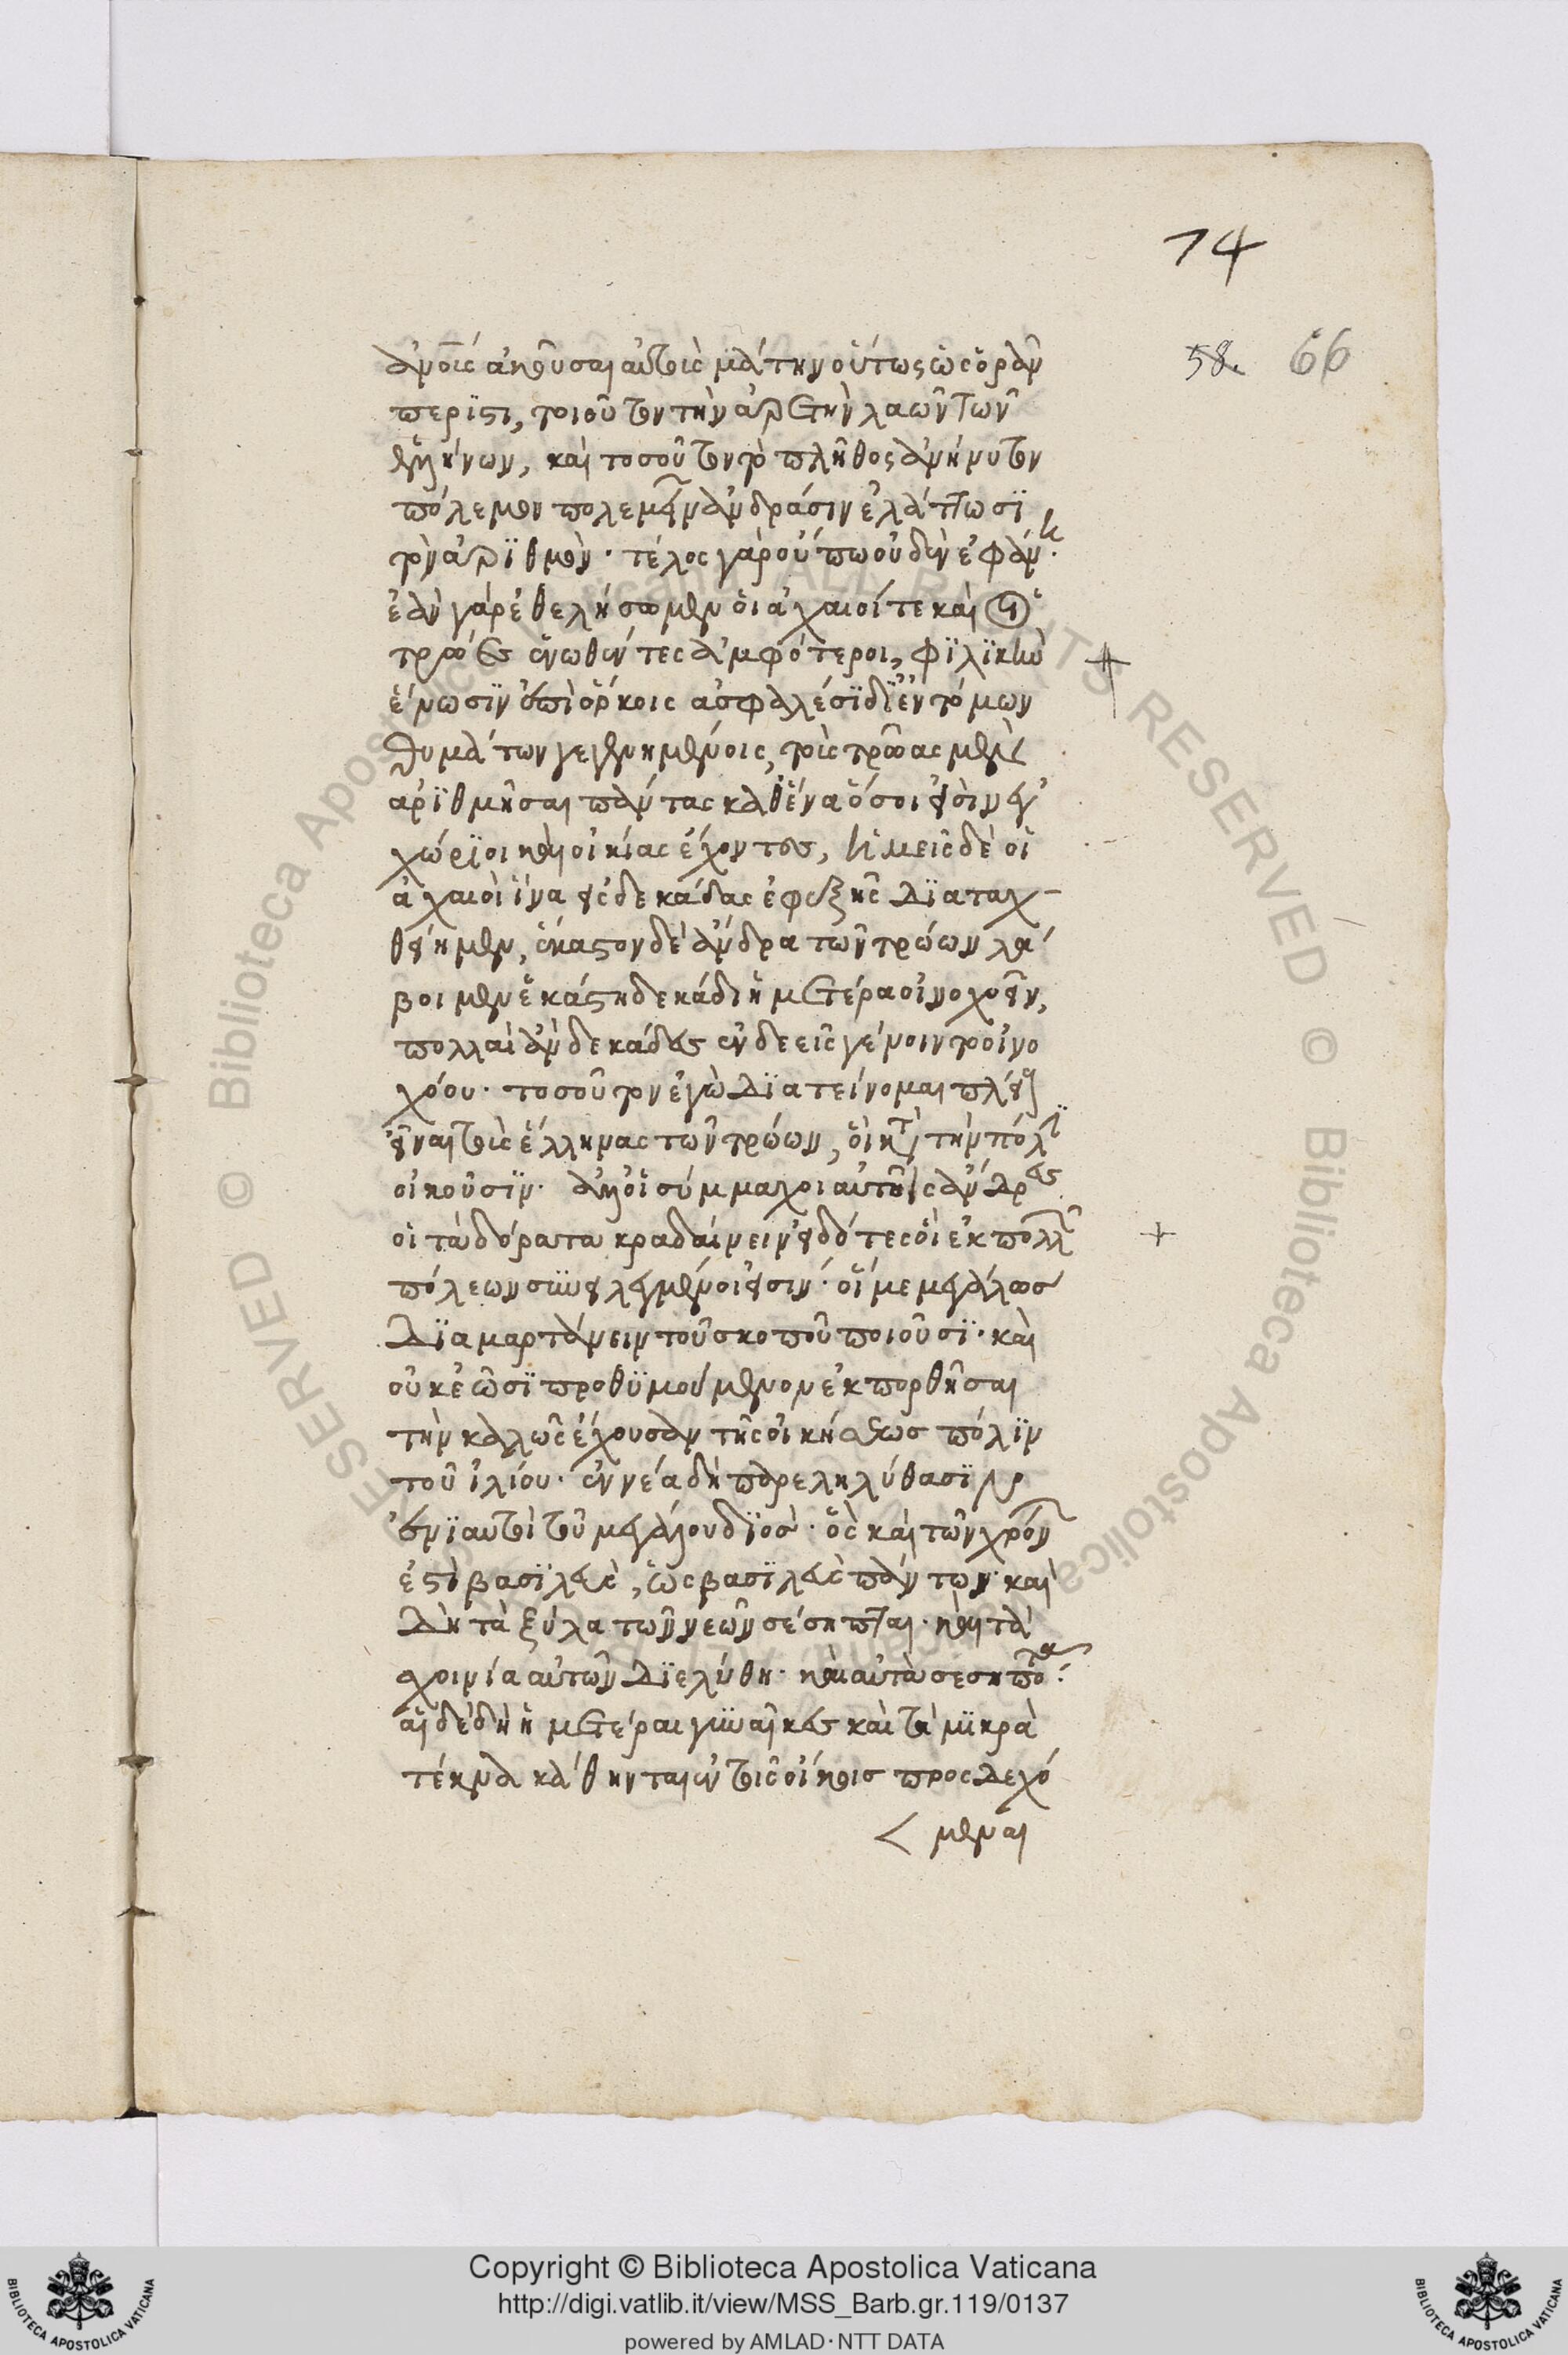 74
58. 66
ἀνοις ἀκοῦσαι αὐτοῖς μάτην οὕτως ὡς ὁρᾶν
περίεστι, τοιοῦτον τὴν ἀρετὴν λαῶν τῶν
ἑλλήνων, καὶ τοσοῦτον τὸ πλῆθος ἀνήνυτον
πόλεμον πολεμεῖν ἀνδράσιν ἐλάττωσϊ
τὸν ἀρϊθμὸν· τέλος γὰρ οὔπω οὐδὲν ἐφάνη·
ἐὰν γὰρ ἐθελήσωμεν οἱ ἀχαιοί τε καὶ οἱ
τρῶες ἑνωθέντες ἀμφότεροι, φϊλϊκὴν
ἕνωσϊν ἐπὶ ὅρκοις ἀσφαλέσϊ δϊ ἐντόμων
θυμάτων γεγενημένοις, τοὺς τρῶας μὲν
ἀρϊθμῆσαι πάντας καθένα ὅσοι εἰσὶν ἐγ
χώρϊοι καὶ οἰκίας ἔχοντες, ἡμεῖς δὲ οἱ
ἀχαιοὶ ἵνα εἰς δεκάδας ἐφεξῆς δϊαταχ-
θείημεν, ἕκαστον δὲ ἄνδρα τῶν τρώων λά
βοιμεν ἑκάστη δεκάδι ἡμετέρα οἰνοχοεῖν,
πολλαὶ ἂν δεκάδες ἐνδεεῖς γένοιντο οἰνο
χόου· τοσοῦτον ἐγὼ δϊατείνομαι πλείους
εἶναι τοὺς ἕλληνας τῶν τρώων, οἳ κατὰ τὴν πόλϊν
οἰκοῦσϊν· ἀλλ' οἱ σύμμαχοι αὐτῆς ἄνδρες
οἱ τὰ δόρατα κραδαίνειν εἰδότες οἱ ἐκ πολλῶν
πόλεων συνειλεγμένοι εἰσιν· οἵ με μεγάλως
δϊαμαρτάνειν τοῦ σκοποῦ ποιοῦσϊ· καὶ
οὐκ ἐῶσϊ προθϋμούμενον ἐκπορθῆσαι
τὴν καλῶς ἔχουσαν τῆς οἰκήσεως πόλϊν
τοῦ ἰλίου· ἐννέα δὴ παρεληλύθασϊν
ἐνϊαυτοὶ τοῦ μεγάλου δϊὸς· ὃς καὶ τῶν χρόνων
ἐστὶ βασϊλεὺς, ὡς βασϊλεὺς πάντων· καὶ
δὴ τὰ ξύλα τῶν νεῶν σέσηπται· καὶ τὰ
σχοινία αὐτῶν δϊελύθη· καὶ αὐτὰ σεσηπότα·
αἱ δὲ δὴ ἡμέτεραι γυναῖκες καὶ τὰ μϊκρὰ
τέκνα κάθηνται ἐν τοῖς οἴκοις προσδεχό
< μεναι
Copyright © Biblioteca Apostolica Vaticana
http://digi.vatlib.it/view/MSS_Barb.gr.119/0137
powered by AMLAD·NTT DATA